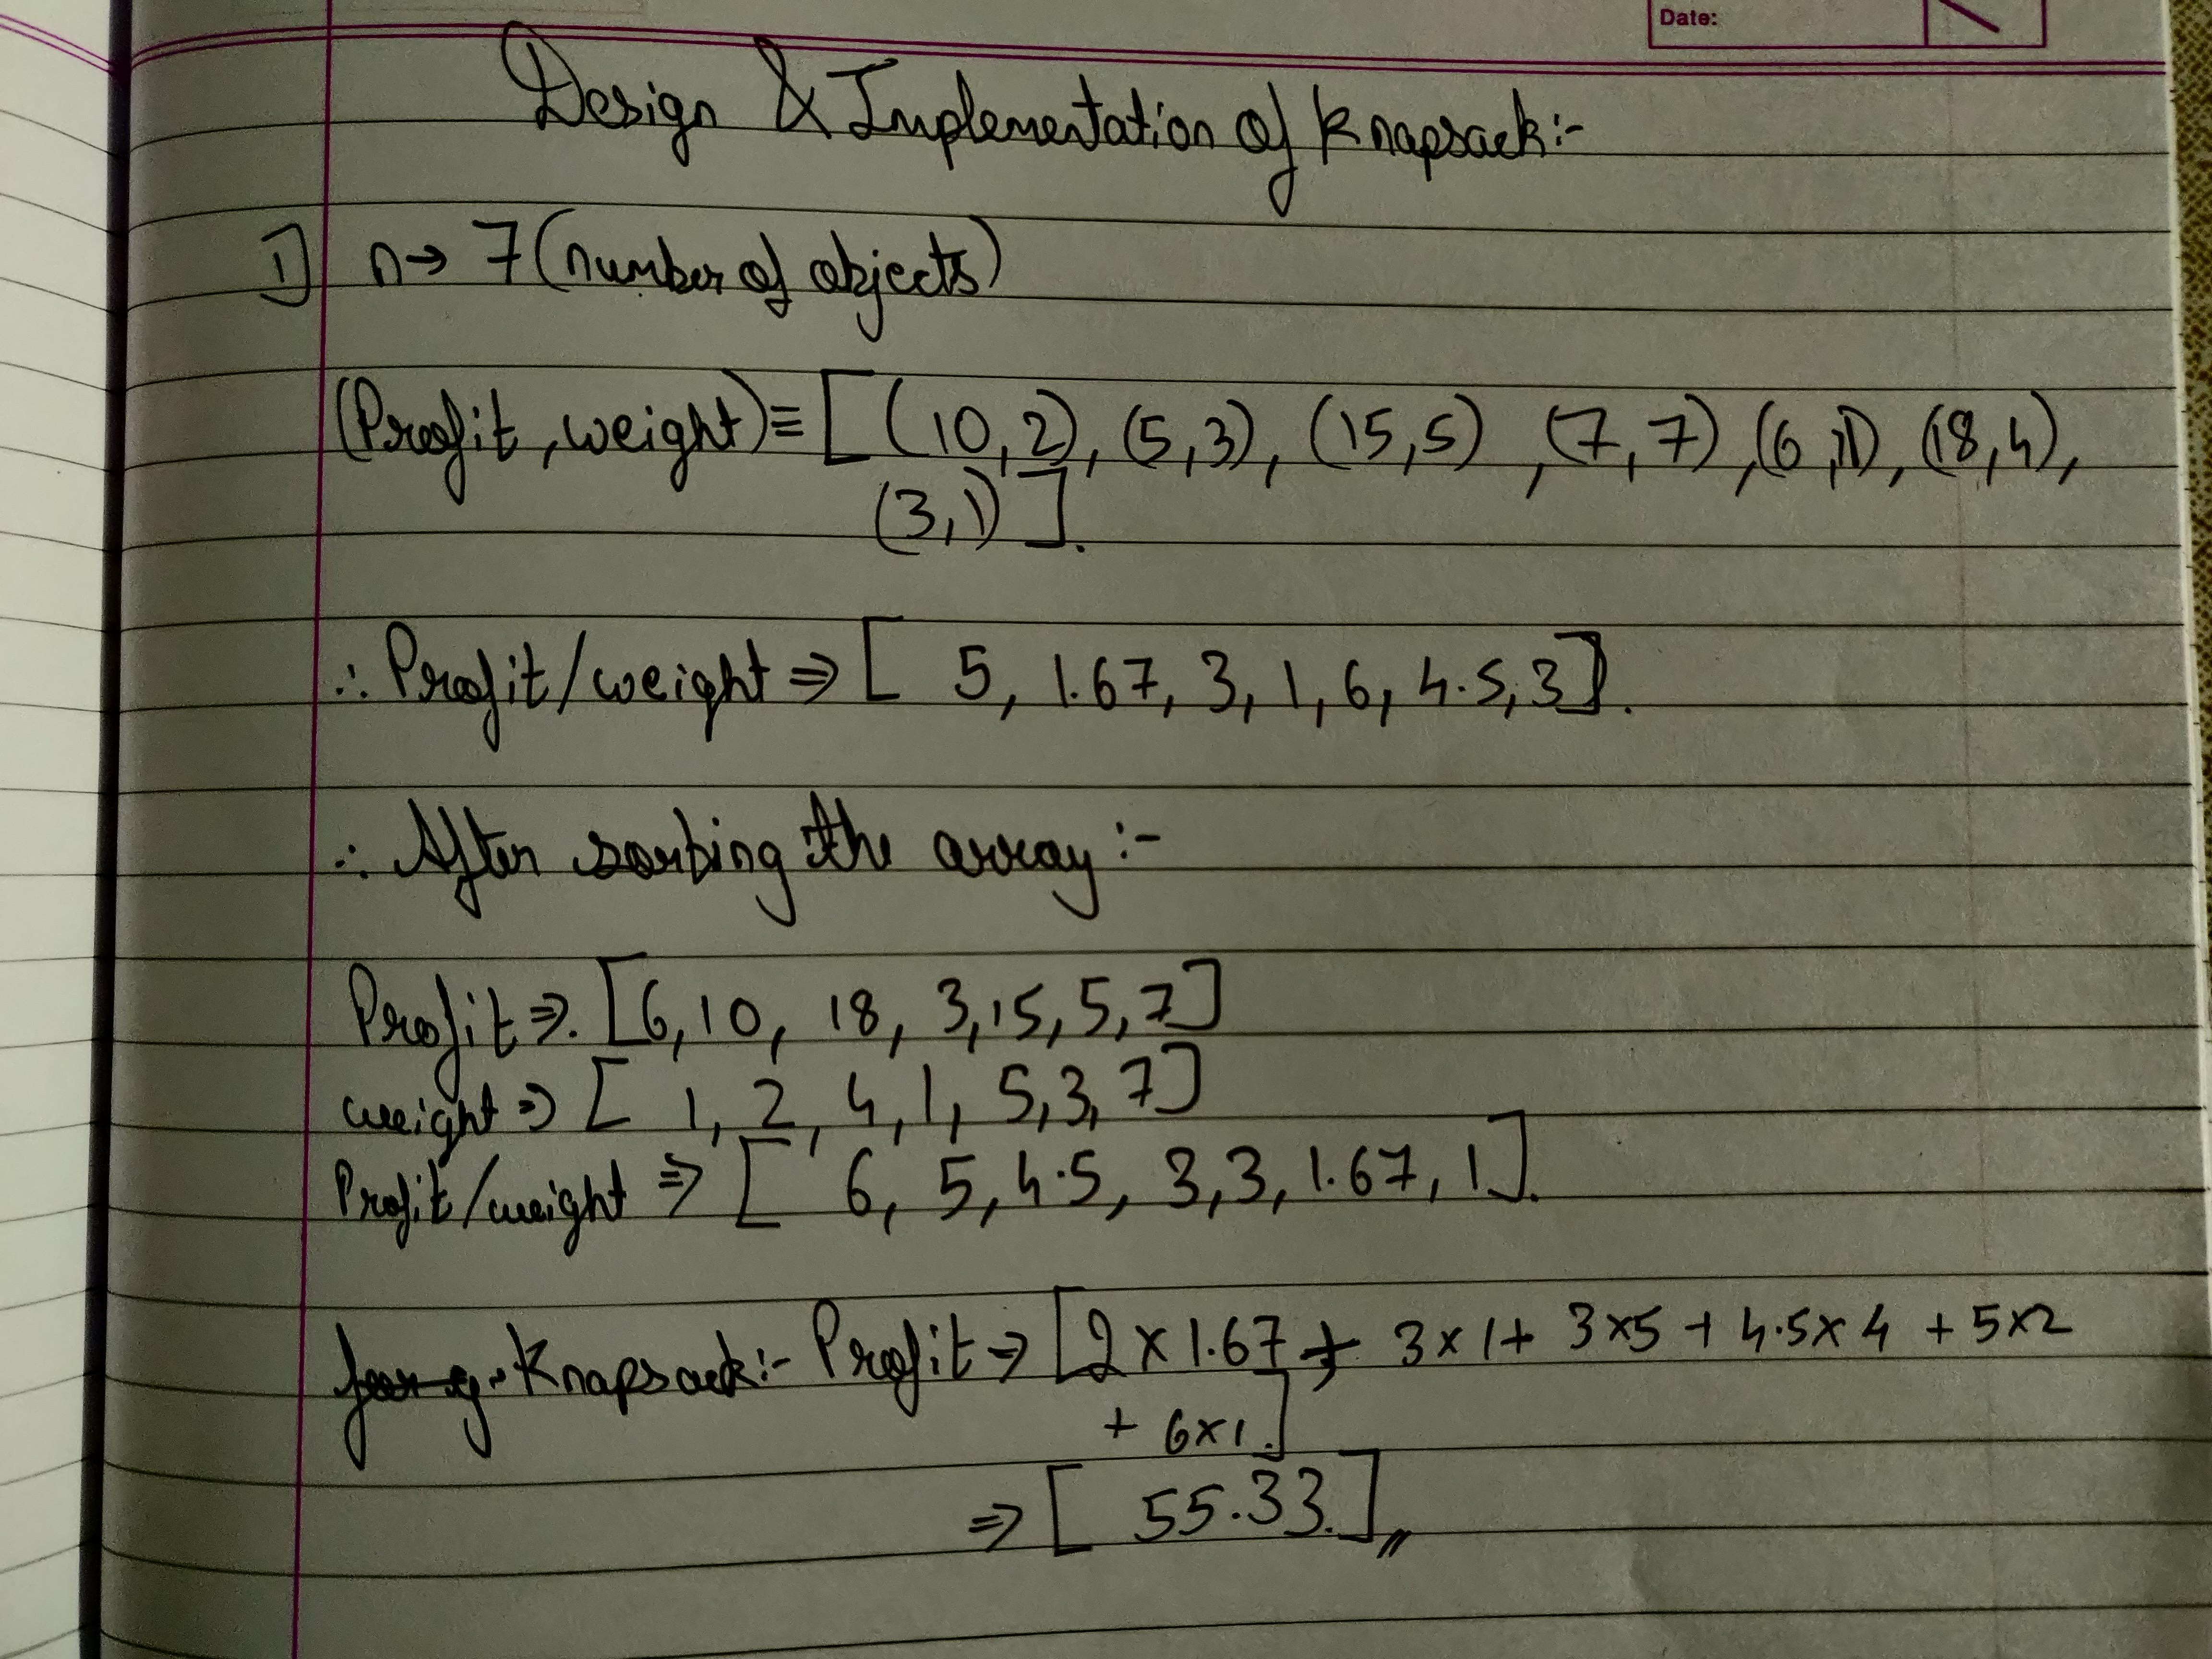 Date:
Design & Implementation of Knapsack:-
1] n→ 7 (number of objects)
(Profit, weight)= [ (10,2), (5,3), (15,5), (7,7), (6,1), (18,4),
(3,1) ].
∴ Profit/weight ⇒ [ 5, 1.67, 3, 1, 6, 4.5, 3].
∴ After sorting the array:-
Profit ⇒. [6, 10, 18, 3, 15, 5, 7]
weight ⇒ [ 1, 2, 4, 1, 5, 3, 7]
Profit/weight ⇒ [ 6, 5, 4.5, 3, 3, 1.67, 1].
Knapsack:- Profit ⇒ [2 × 1.67 + 3×1 + 3×5 + 4.5×4 + 5×2
+ 6×1.]
⇒ [ 55.33.]